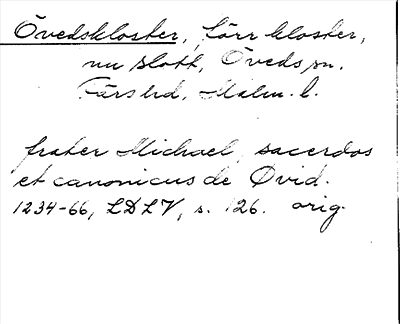 Övedskloster, förr kloster,
nu slott, Öveds sn.
Färs hd, Malm. l.
frater Michael, sacerdos
et canonicus de Øvid.
1234-66, LDLV, s. 126. orig.